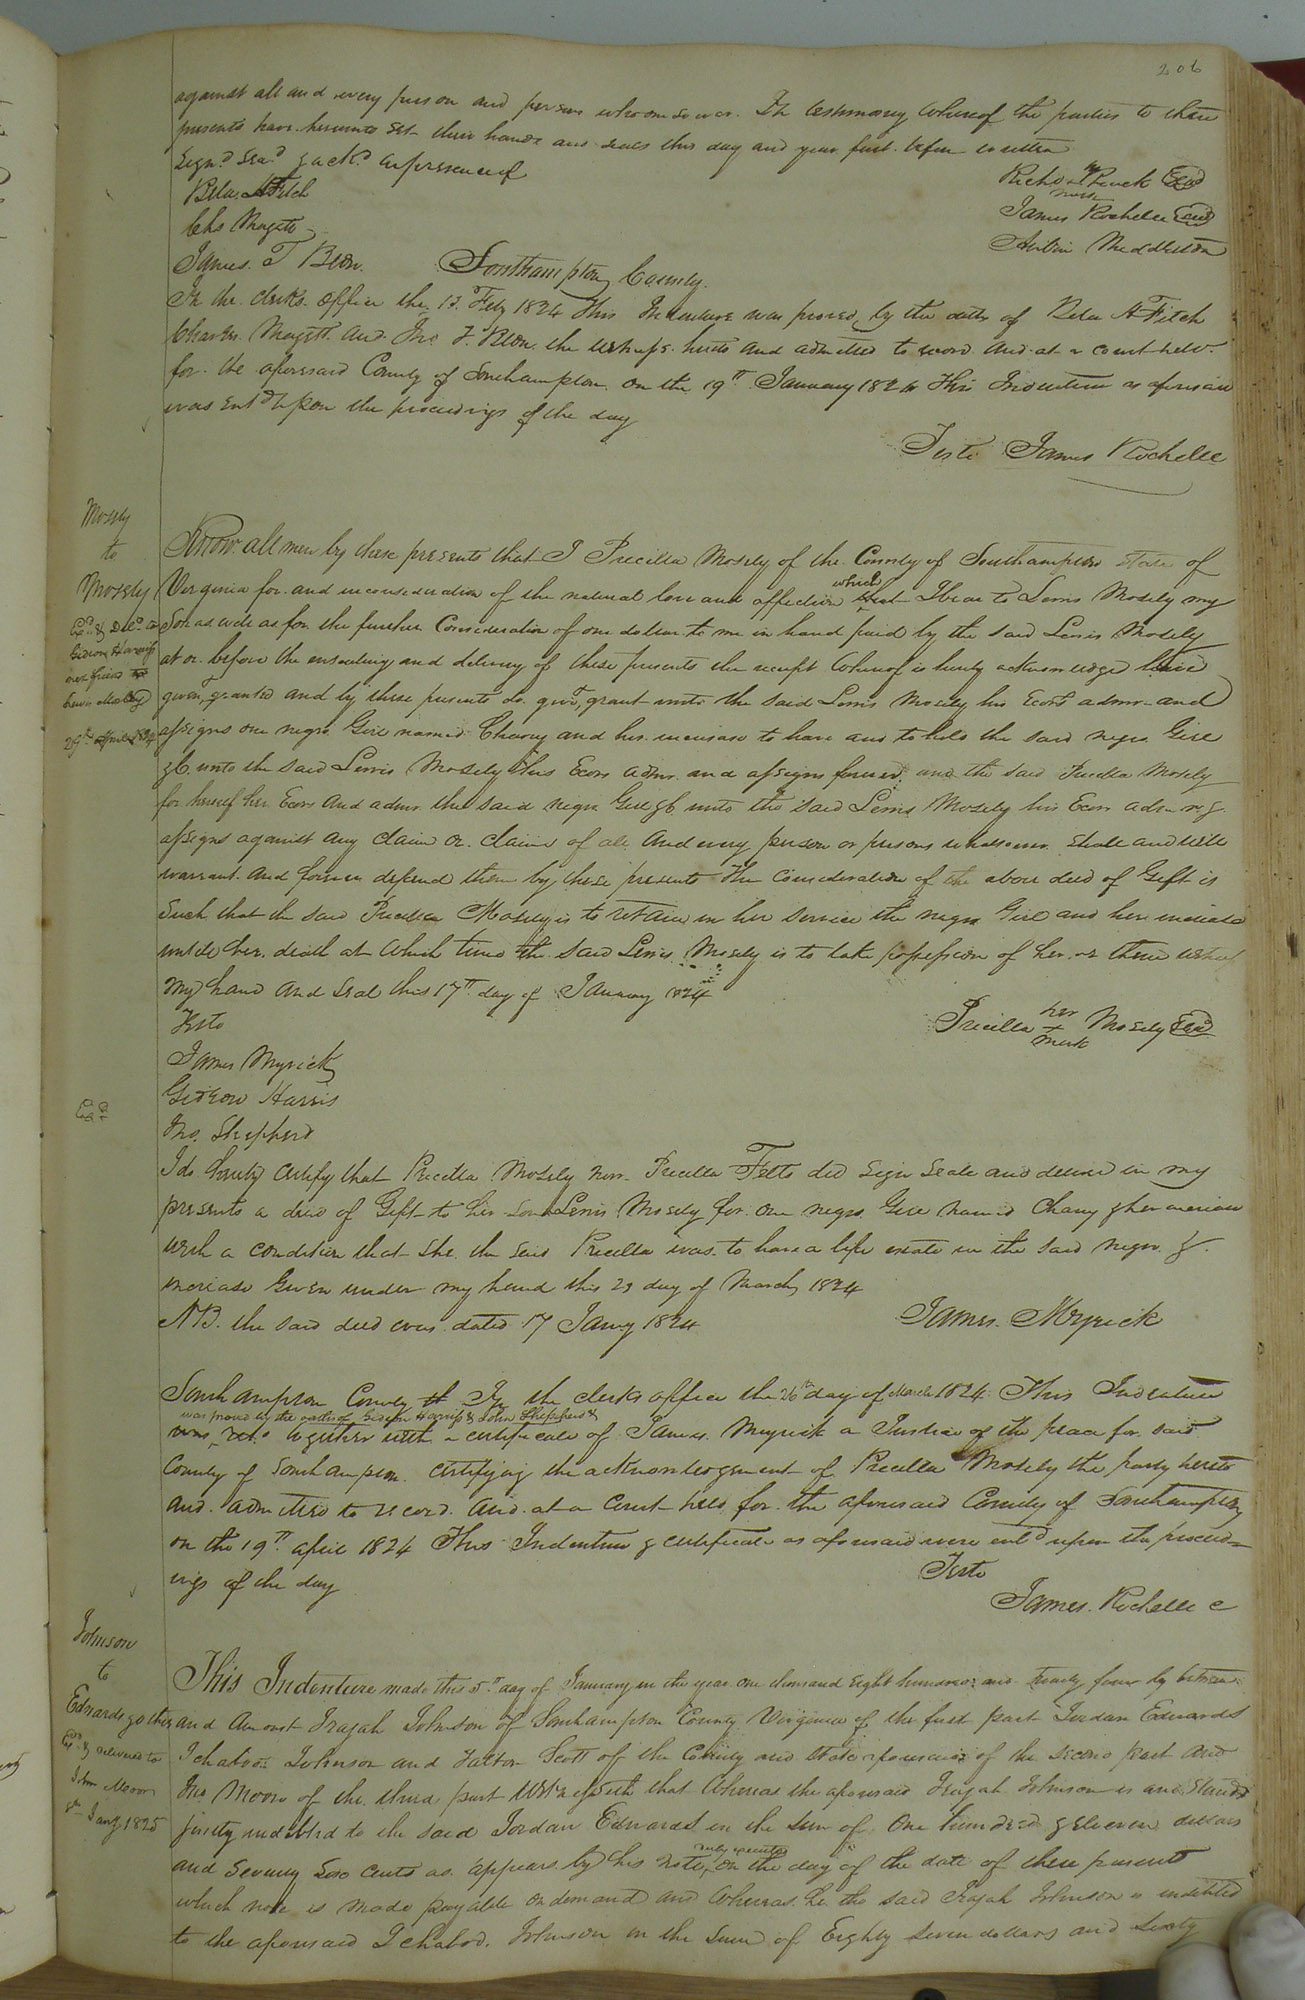 206
against all and every person and persons whomsoever. In testimony whereof the parties to these
presents have hereunto set their hands and seals this day and year first before written
Sign.d Sea.d & ack.d in presence of
Richd Peuck Seal
mark
Belas A Fitch
James Rochelle Seal
Chs Magett
Middleton
James T Blow
Southampton County.
In the clerks office the 12 Feby 1824 This Indenture was proved by the oaths of Belas A Fitch
Charles Magett and Jno T. Blow the witnesses hereto and admitted to record And at a court held
for the aforesaid County of Southampton on the 19th January 1824 This Indenture as aforesaid
was entd upon the proceedings of the day
Teste James Rochelle
Mosely
to
Mosely
Exd & Deld to
Gideon Harriss
Lewis Mosely
29th April 1824
Know all men by these presents that I Precilla Mosely of the County of Southampton State of
Virginia for and in consideration of the natural love and affection which I bear to Lewis Mosely my
Son as well as for the further Consideration of one dollar to me in hand paid by the said Lewis Mosely
at or before the ensealing and delivery of these presents the receipt whereof is hereby acknowledge have
given, granted and by these presents do give, grant unto the said Lewis Mosely his Ecors admrs and
assigns one negro Girl named Chaney and her increase to have and to hold the said negro Girl
&c unto the said Lewis Mosely his Ecors admrs and assigns forever and the said Precilla Mosely
for herself her Ecors and admrs the said negro Girl &c unto the said Lewis Mosely his Ecors admrs &
assigns against any claim or claims of all and every person or persons whatsoever shall and will
warrant and forever defend them by these presents The consideration of the above deed of Gift is
Such that the said Precilla Mosely is to retain in her service the negro Girl and her increase
until her death at which time the said Lewis Mosely is to take possession of her or them witness
my hand and Seal this 17th day of January 1824
Teste
Precilla her + mark Mosely Seal
James Myrick
Gideon Harris
Jno. Shepherd
Exd
I do hereby certify that Precilla Mosely now Precilla Felts did Sign Seal and deliver in my
presents a deed of Gift to her Son Lewis Mosely for one negro Girl named Chany & her increase
with a condition that she the said Precilla was to have a life estate in the said negro &
increase Given under my hand this 23 day of March 1824
NB. the said deed was dated 17 Jany 1824
James Myrick
Southampton County In the clerks office the 26th day of March 1824 This Indenture
was proved by the oaths of Gideon Harriss & John Shepherd &
together with a certificate of James Myrick a Justice of the peace for said
County of Southampton certifying the acknowledgement of Precilla Mosely the party hereto
and admitted to record And at a Court held for the aforesaid County of Southampton
on the 19th april 1824 This Indenture & certificate as aforesaid were entd upon the proceed=
ings of the day
Teste
James Rochelle C
Johnson
to
Edwards & others
Exd & delivered to
John Moore
Jany 1825
This Indenture made this 5th day of January in the year one thousand eight hundred and twenty four by between
and amonst Trajah Johnson of Southampton County Virginia of the first part Jordan Edwards
Ichabod Johnson and Fatton Scott of the County and state aforesaid of the second part and
Jno Moore of the third part Witnesseth that Whereas the aforesaid Trajah Johnson is and stands
justly indebted to the said Jordan Edwards in the sum of One hundred & eleven dollars
and Seventy Six cents as appears by his note, duly executed on the day of the date of these presents
which note is made payable on demand and Whereas he the said Trajah Johnson is indebted
to the aforesaid Ichabod Johnson in the sum of Eighty Seven dollars and sixty